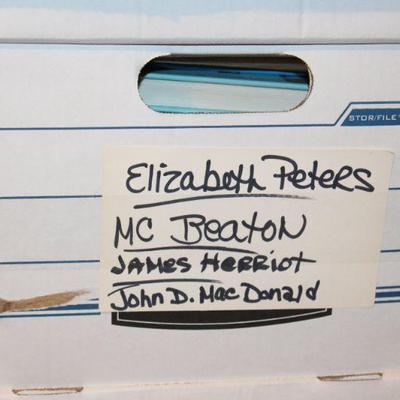 STOR/FILE
Elizabeth Peters
MC Beaton
James Herriot
John D. MacDonald